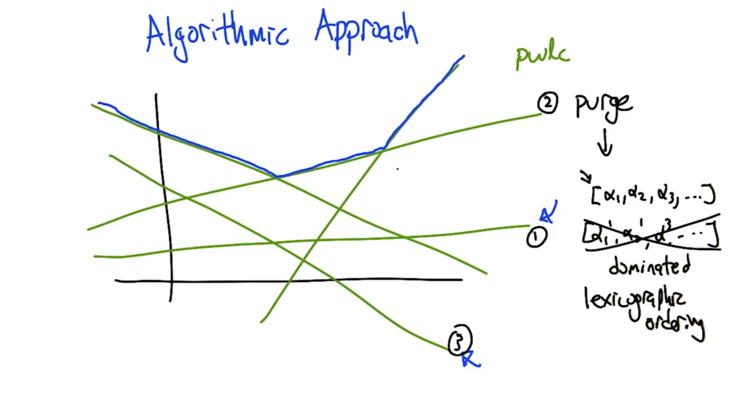 Algorithmic Approach
pwlc
② purge
↓
[α₁, α₂, α₃, ...]
[α₁', α₂', α³, ...]
dominated
lexicographic
ordering
①
③